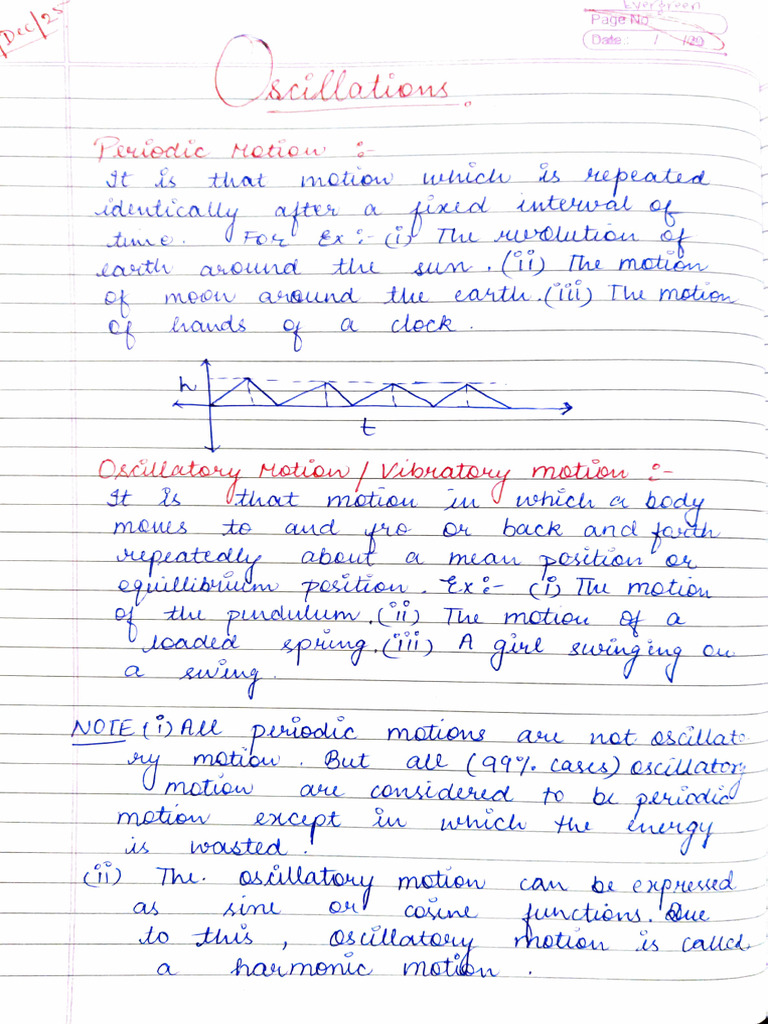 Dec/25
Evergreen
Page No
Date : / /20
Oscillations.
Periodic Motion :-
It is that motion which is repeated
identically after a fixed interval of
time. For Ex :- (i) The revolution of
earth around the sun. (ii) The motion
of moon around the earth. (iii) The motion
of hands of a clock.
h
t
Oscillatory Motion / Vibratory motion :-
It is that motion in which a body
moves to and fro or back and forth
repeatedly about a mean position or
equillibrium position. Ex :- (i) The motion
of the pendulum. (ii) The motion of a
loaded spring. (iii) A girl swinging on
a swing.
NOTE (i) All periodic motions are not oscillato
ry motion. But all (99% cases) oscillatory
motion are considered to be periodic
motion except in which the energy
is wasted.
(ii) The. oscillatory motion can be expressed
as sine or cosine functions. Due
to this, oscillatory motion is called
a harmonic motion.